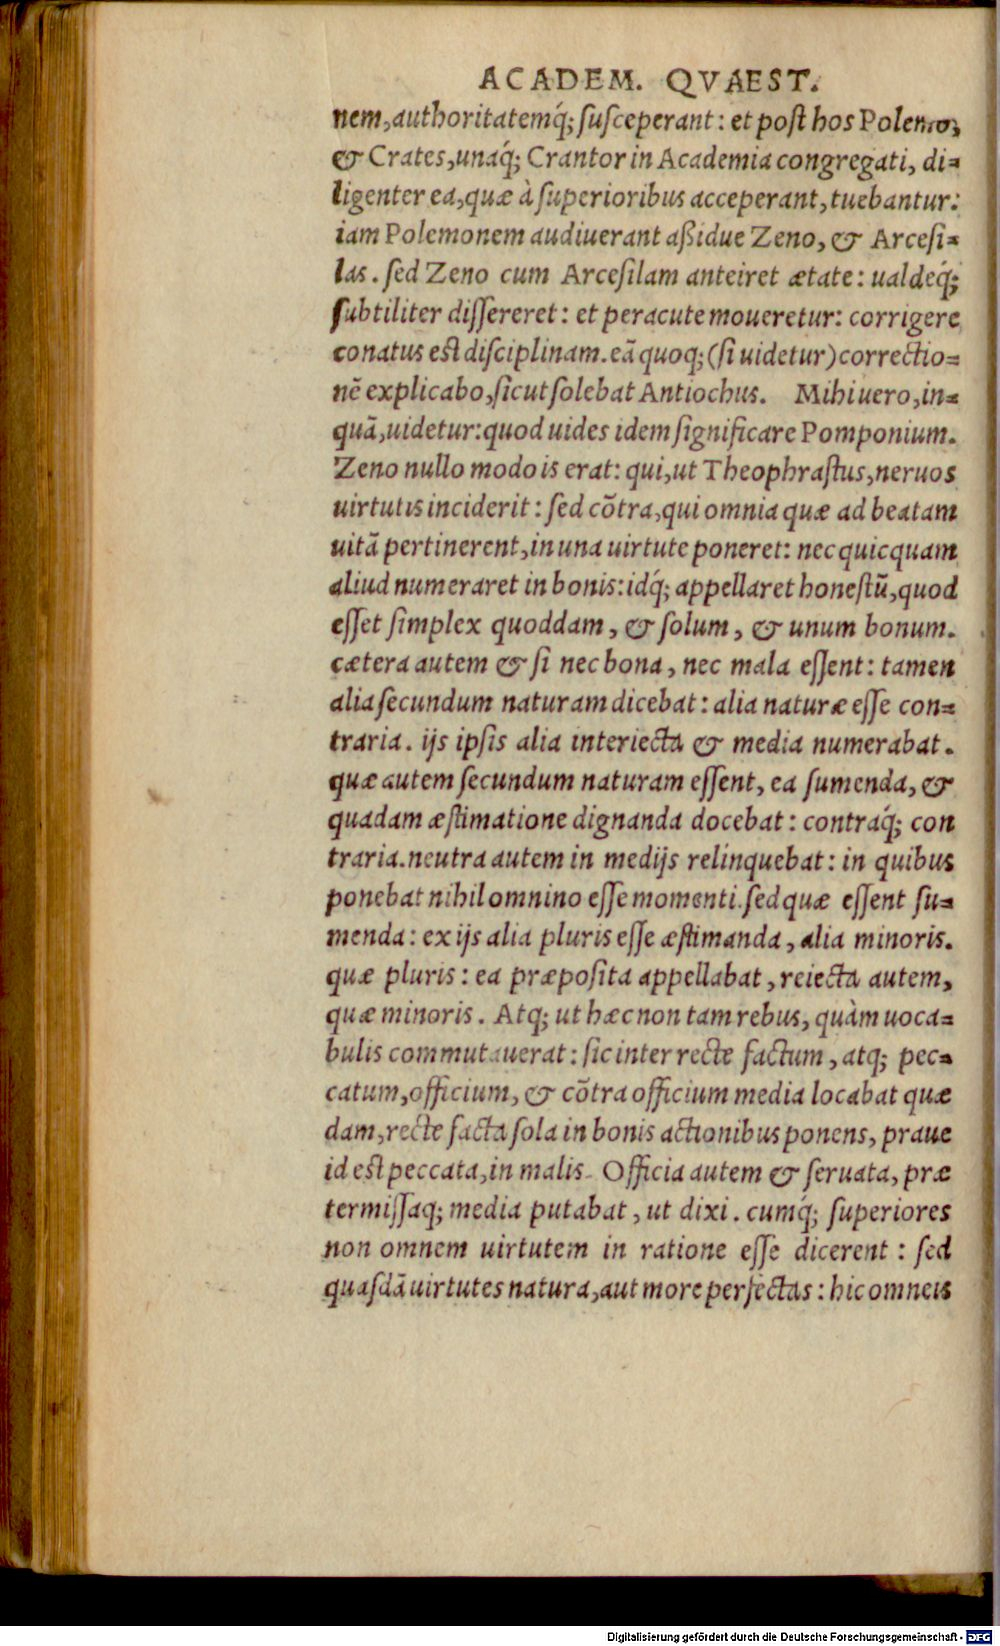 ACADEM. QVAEST.
nem, authoritatemq́; susceperant: et post hos Polemo,
& Crates, unaq́; Crantor in Academia congregati, di-
ligenter ea, quæ à superioribus acceperant, tuebantur:
iam Polemonem audiuerant aßidue Zeno, & Arcesi-
las. sed Zeno cum Arcesilam anteiret ætate: ualdeq́;
subtiliter dissereret: et peracute moueretur: corrigere
conatus est disciplinam. eã quoq; (si uidetur) correctio-
nẽ explicabo, sicut solebat Antiochus. Mihi uero, in-
quã, uidetur: quod uides idem significare Pomponium.
Zeno nullo modo is erat: qui, ut Theophrastus, neruos
uirtutis inciderit: sed cõtra, qui omnia quæ ad beatam
uitã pertinerent, in una uirtute poneret: nec quicquam
aliud numeraret in bonis: idq́; appellaret honestũ, quod
esset simplex quoddam, & solum, & unum bonum.
cætera autem & si nec bona, nec mala essent: tamen
alia secundum naturam dicebat: alia naturæ esse con-
traria. ijs ipsis alia interiecta & media numerabat.
quæ autem secundum naturam essent, ea sumenda, &
quadam æstimatione dignanda docebat: contraq́; con
traria. neutra autem in medijs relinquebat: in quibus
ponebat nihil omnino esse momenti. sed quæ essent su-
menda: ex ijs alia pluris esse æstimanda, alia minoris.
quæ pluris: ea præposita appellabat, reiecta autem,
quæ minoris. Atq; ut hæc non tam rebus, quàm uoca-
bulis commutauerat: sic inter recte factum, atq; pec-
catum, officium, & cõtra officium media locabat quæ
dam, recte facta sola in bonis actionibus ponens, praue
id est peccata, in malis. Officia autem & seruata, præ
termissaq; media putabat, ut dixi. cumq́; superiores
non omnem uirtutem in ratione esse dicerent: sed
quasdã uirtutes natura, aut more perfectas: hic omneis
Digitalisierung gefördert durch die Deutsche Forschungsgemeinschaft - DFG